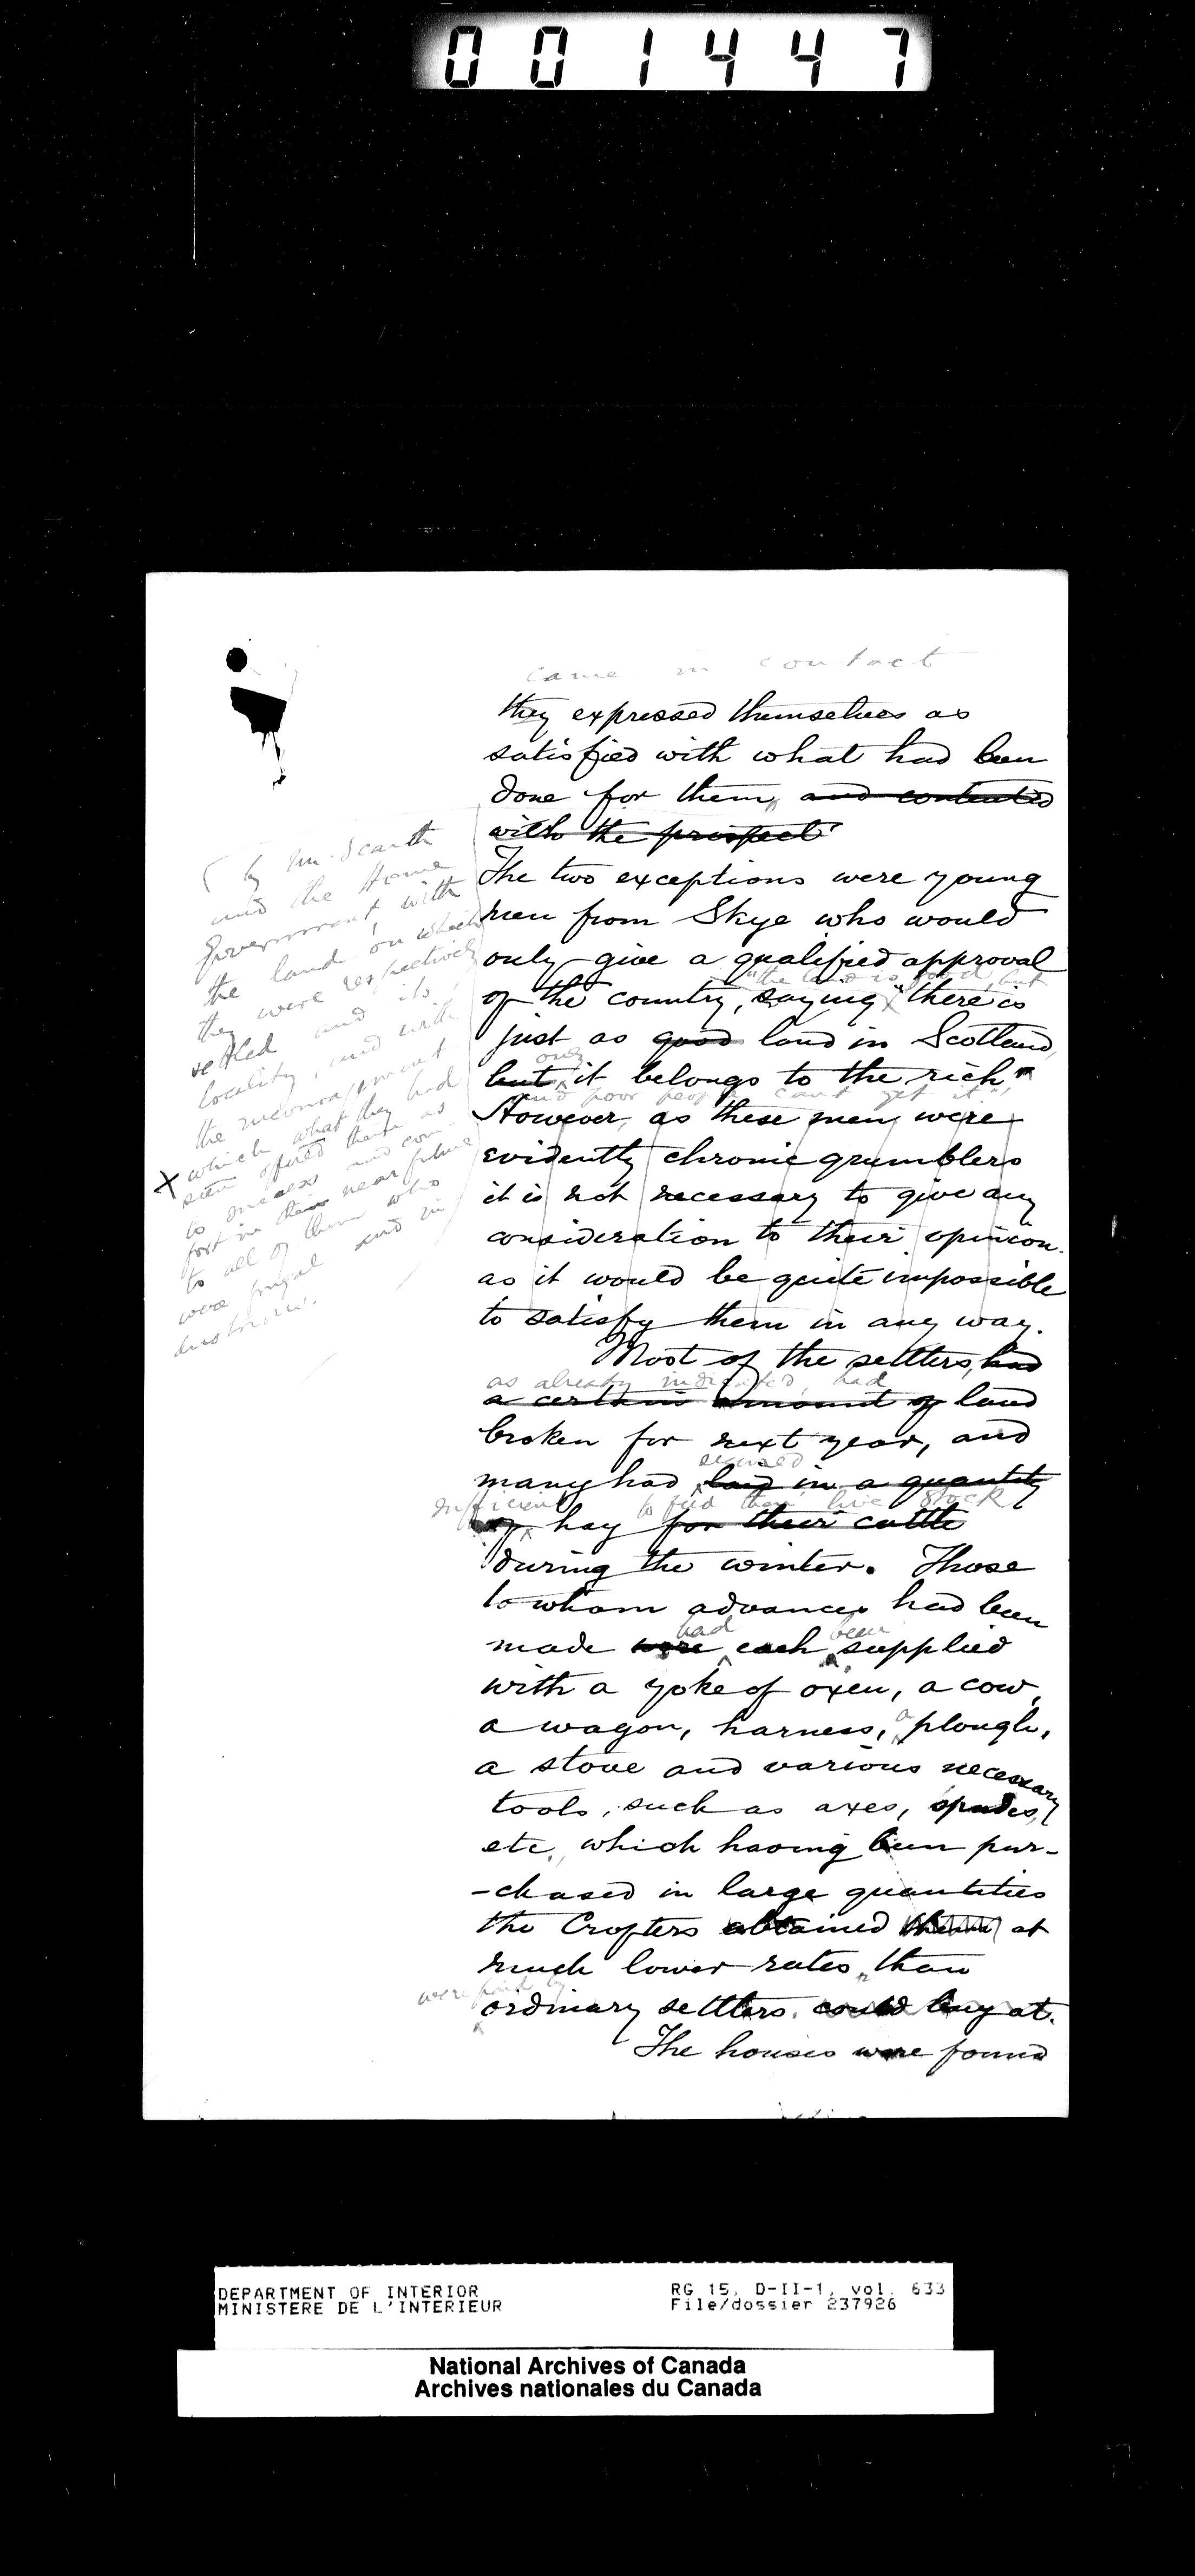 001447
came in contact
they expressed themselves as
satisfied with what had been
done for them, and contented
with the prospect
( by Mr. Scarth
and the Home
Government, with
the land on which
they were respectively
settled and its
locality, and with
the encouragement
which what they had
seen offered them as
to success and com-
fort in their near future
to all of them who
were frugal and in
dustrious.
The two exceptions were young
men from Skye who would
only give a qualified approval
"the land is good, but
of the country, saying "there is
just as good land in Scotland
only
but it belongs to the rich"
and poor people can't get it"
However, as these men were
evidently chronic grumblers
it is not necessary to give any
consideration to their opinion.
as it would be quite impossible
to satisfy them in any way.
Most of the settlers, had
as already indicated, had
a certain amount of land
broken for next year, and
secured
many had laid in a quantity
sufficient to feed their live stock
of hay for their cattle
during the winter. Those
to whom advances had been
had been
made were each supplied
with a yoke of oxen, a cow,
a wagon, harness, a plough,
a stove and various necessary
tools, such as axes, spades,
etc., which having been pur-
-chased in large quantities
the Crofters obtained them at
much lower rates than
were paid by
ordinary settlers. could buy at.
The houses were found
DEPARTMENT OF INTERIOR
MINISTERE DE L'INTERIEUR
RG 15, D-II-1, vol. 633
File/dossier 237926
National Archives of Canada
Archives nationales du Canada